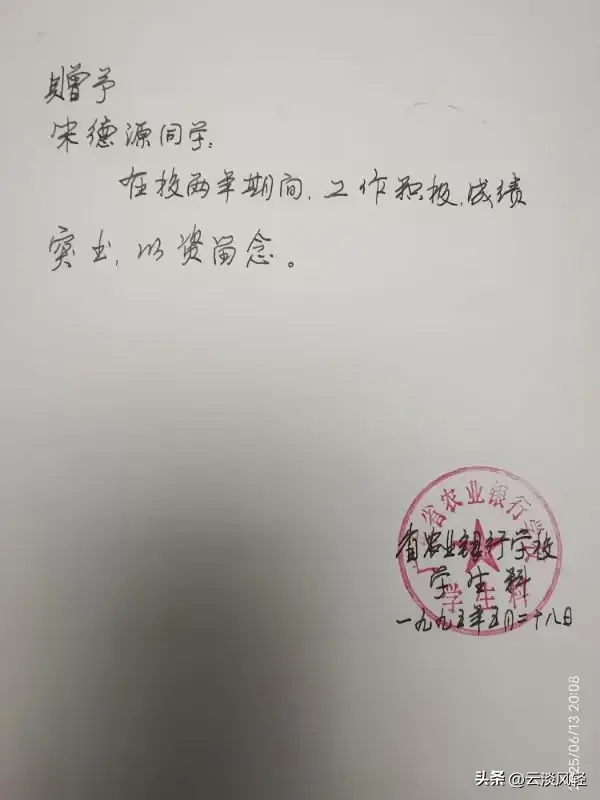 赠予
宋德源同学:
在校两年期间,工作积极,成绩
突出,以资留念。
省农业银行学
省农业银行学校
学生科
学生科
一九九五年五月二十八日
2025/06/13 20:08
头条 @云淡风轻